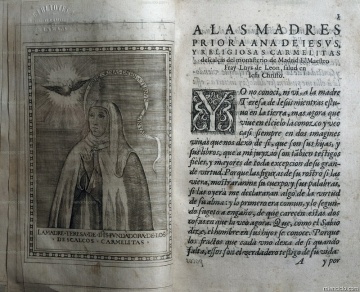 LA MADRE TERESA DE IHS FVNDADORA DE LOS
DESCALCOS CARMELITAS
A LAS MADRES
PRIORA ANA DE IESVS,
Y RELIGIOSAS CARMELITAS
descalças del monasterio de Madrid El Maestro
Fray Luys de Leon, salud en
Iesu Christo.
YO no conoci, ni vi, a la madre
Teresa de Iesus mientras estuuo
en la tierra, mas agora que
viue en el cielo la conozco y veo
casi siempre en dos imagines
viuas que nos dexo de si, que son sus hijas, y
sus libros, que a mi juyzio son tãbiẽ testigos
fieles, y mayores de toda excepcion de su grande
virtud. Porque las figuras de su rostro si las
viera, mostraranme su cuerpo, y sus palabras,
si las oyera me declararan algo de la virtud
de su alma: y lo primero era comun, y lo segundo
sujeto a engaño, de que carecen estas dos
cosas en que la veo agora. Que, como el Sabio
dize, el hombre en sus hijos se conoce. Porque
los fructos que cada vno dexa de si quando
falta, essos son el verdadero testigo de su vida
A
y por